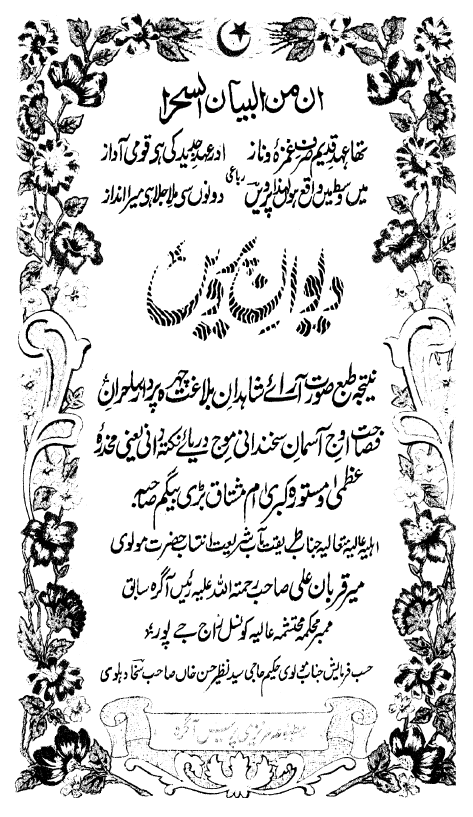 ان من البیان السحرا
تھا عہد قدیم صرف غمزہ و ناز اور عہد جدید کی ہی قومی آواز
رباعی
میں وسطیں واقع ہوں لہذا پرویں دونوں سی ملا جلا ہی میرا انداز
دیوان پرویں
نتیجہ طبع صورت آرائے شاہدان بلاغت چہرہ پرداز سلمران
فصاحت اوج آسمان سخندانی موج دریائے نکتہ دانی یعنی مخدرہ
عظمیٰ و مستورہ کبریٰ ام مشتاق بڑی بیگم صاحبہ
اہلیہ عالیہ جناب طریقت مآب شریعت انتساب حضرت مولوی
میر قربان علی صاحب رحمتہ اللہ علیہ رئیس آگرہ سابق
ممبر محکمہ محتشمہ عالیہ کونسل راج جے پور
حسب فرمایش جناب مولوی حکیم حاجی سید نظیر حسن خاں صاحب سخا دہلوی
مطبوعہ عزیزی پریس آگرہ